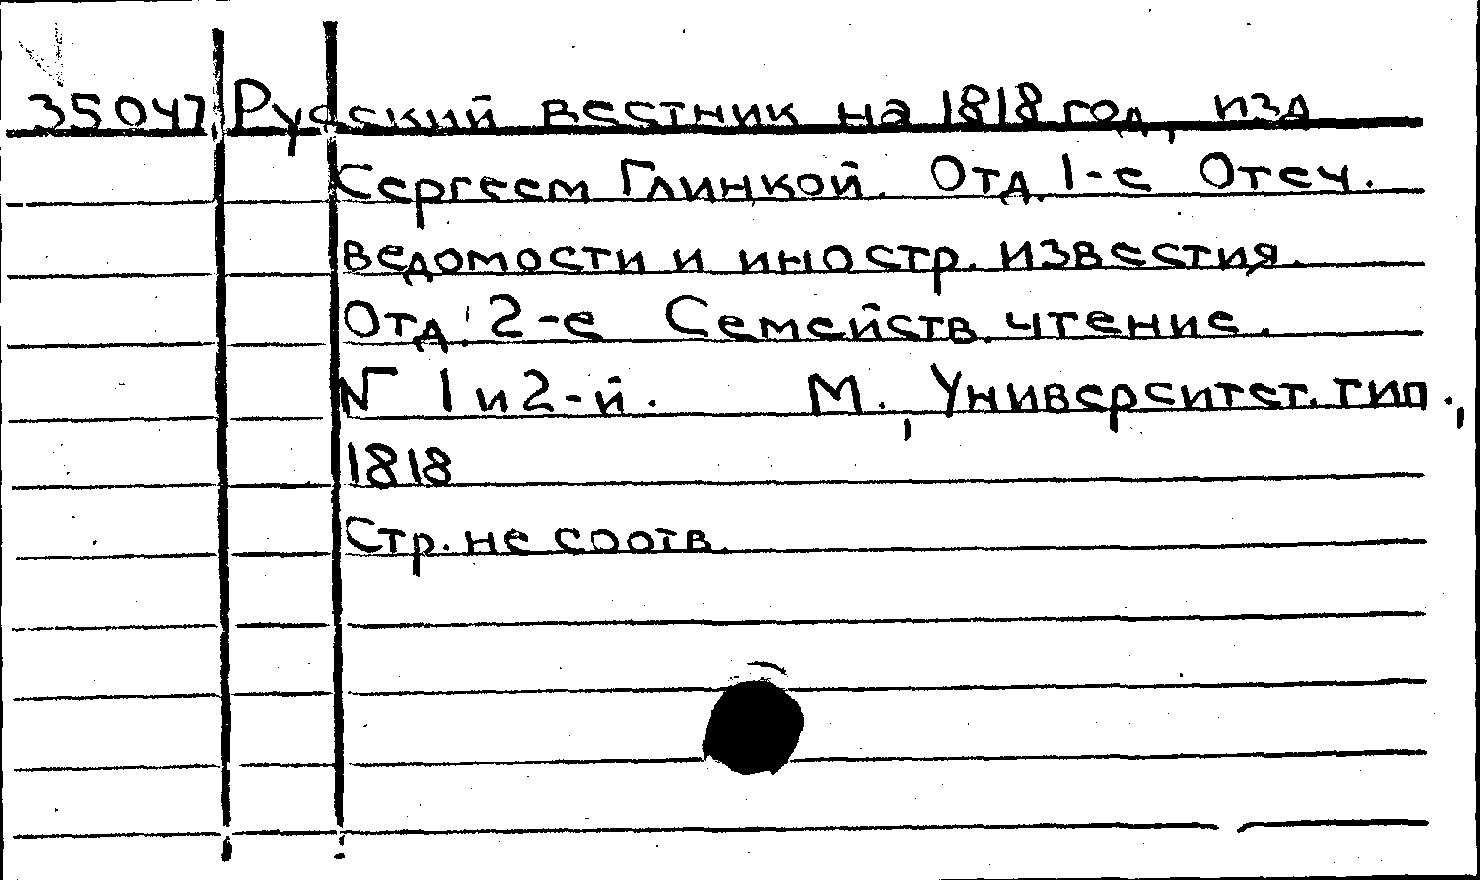 35047 Русский вестник на 1818 год, изд
Сергеем Глинкой. Отд. 1-е Отеч.
ведомости и иностр. известия.
Отд. 2-е Семейств. чтение.
№ 1 и 2-й. М., Университет. тип.,
1818
Стр. не соотв.